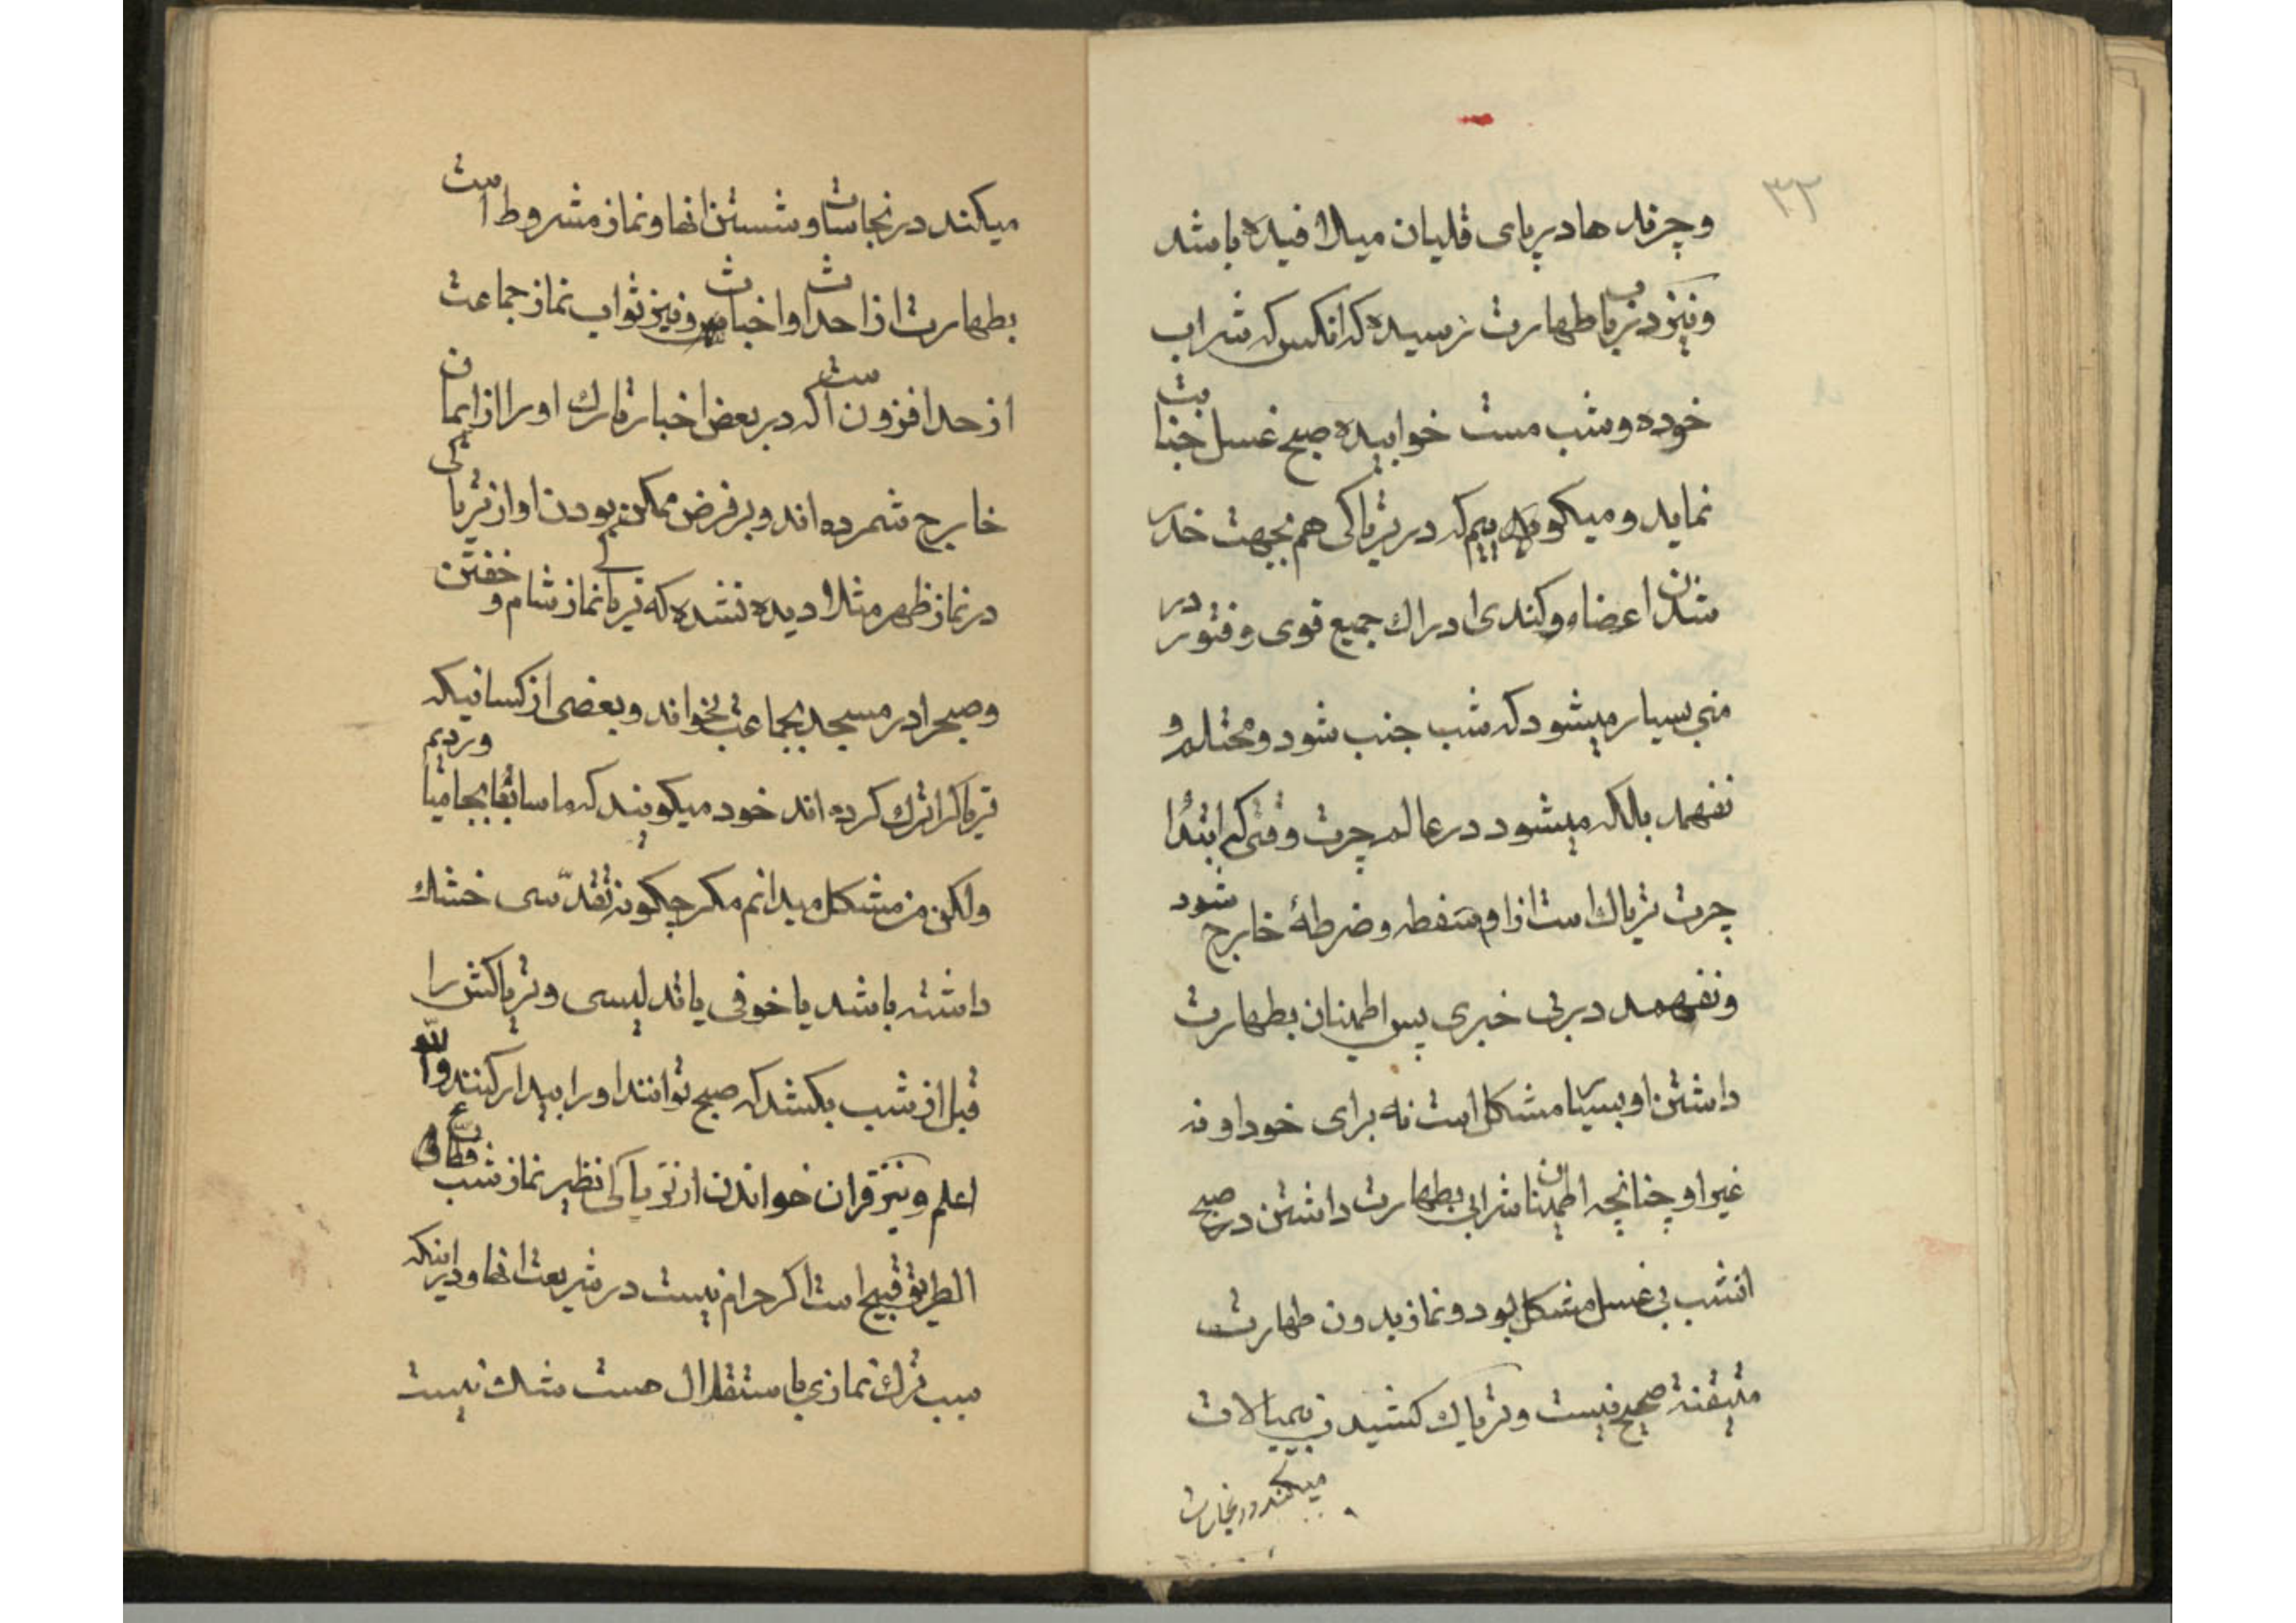 ۳۲
و چرند ها در پای قلیان میلافیده باشد
و نیز در باب طهارت نرسیده که انکس که شراب
خورده و شب مست خوابیده صبح غسل جنابت
نماید و میکوییم که در تریاکی هم بجهت خدر
شدن اعضاء و کندی ادراك جمیع قوی و فتور در
منی بسیار میشود که شب جنب شود و محتلم و
نفهمد بالکه میشود در عالم چرت وقتی که ابتدأ
چرت تریاك است از او ضفطه و ضرطهٔ خارج شود
و نفهمد در بی خبری پس اطمینان بطهارت
داشتن او بسیار مشکل است نه برای خود او نه
غیر او چنانچه اطمینان شرابی بطهارت داشتن در صبح
انشب بی غسل مشکل بود و نماز بدون طهارت
متیقنه صحیح نیست و تریاك کشیدن بیمبالات
میکند در نجاسات
میکند در نجاسات و شستن انها و نماز مشروط است
بطهارت از احداث و اخباث و نیز ثواب نماز جماعت
از حد افزون است که در بعض اخبار تارك او را از ایمان
خارج شمرده اند و بر فرض ممکن بودن او از تریاکی
در نماز ظهر مثلا دیده نشده که تریاکی نماز شام و خفتن
و صبح را در مسجد بجماعت بخواند و بعضی از کسانیکه
تریاك را ترك کرده اند خود میکویند که ما سابقا بجا میاوردیم
ولکن من مشکل میدانم مکر چکونه تقدّسی خشك
داشته باشد یا خوفی یا تدلیسی و تریاکش را
قبل از شب بکشد که صبح توانند او را بیدار کنند والله
اعلم و نیز قران خواندن از تریاکی نظیر نماز شب قطاع
الطریق قبیح است اکر حرام نیست در شریعت انها و در اینکه
سبب ترك نمازی با استقلال هست شك نیست